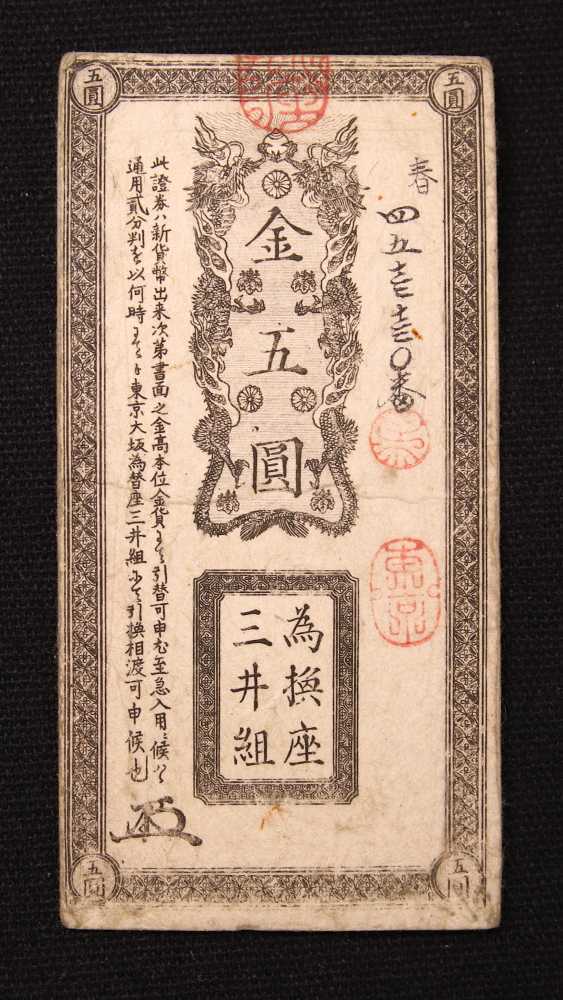 五圓
五圓
春
四五壱壱〇番
東京
金五圓
為換座
三井組
此證券ハ新貨幣出来次第書面之金高本位金貨ヲ以引替可申尤至急入用ニ候ハヾ
通用貳分判を以何時ニても東京大坂為替座三井組ニて引換相渡可申候也
五圓
五圓